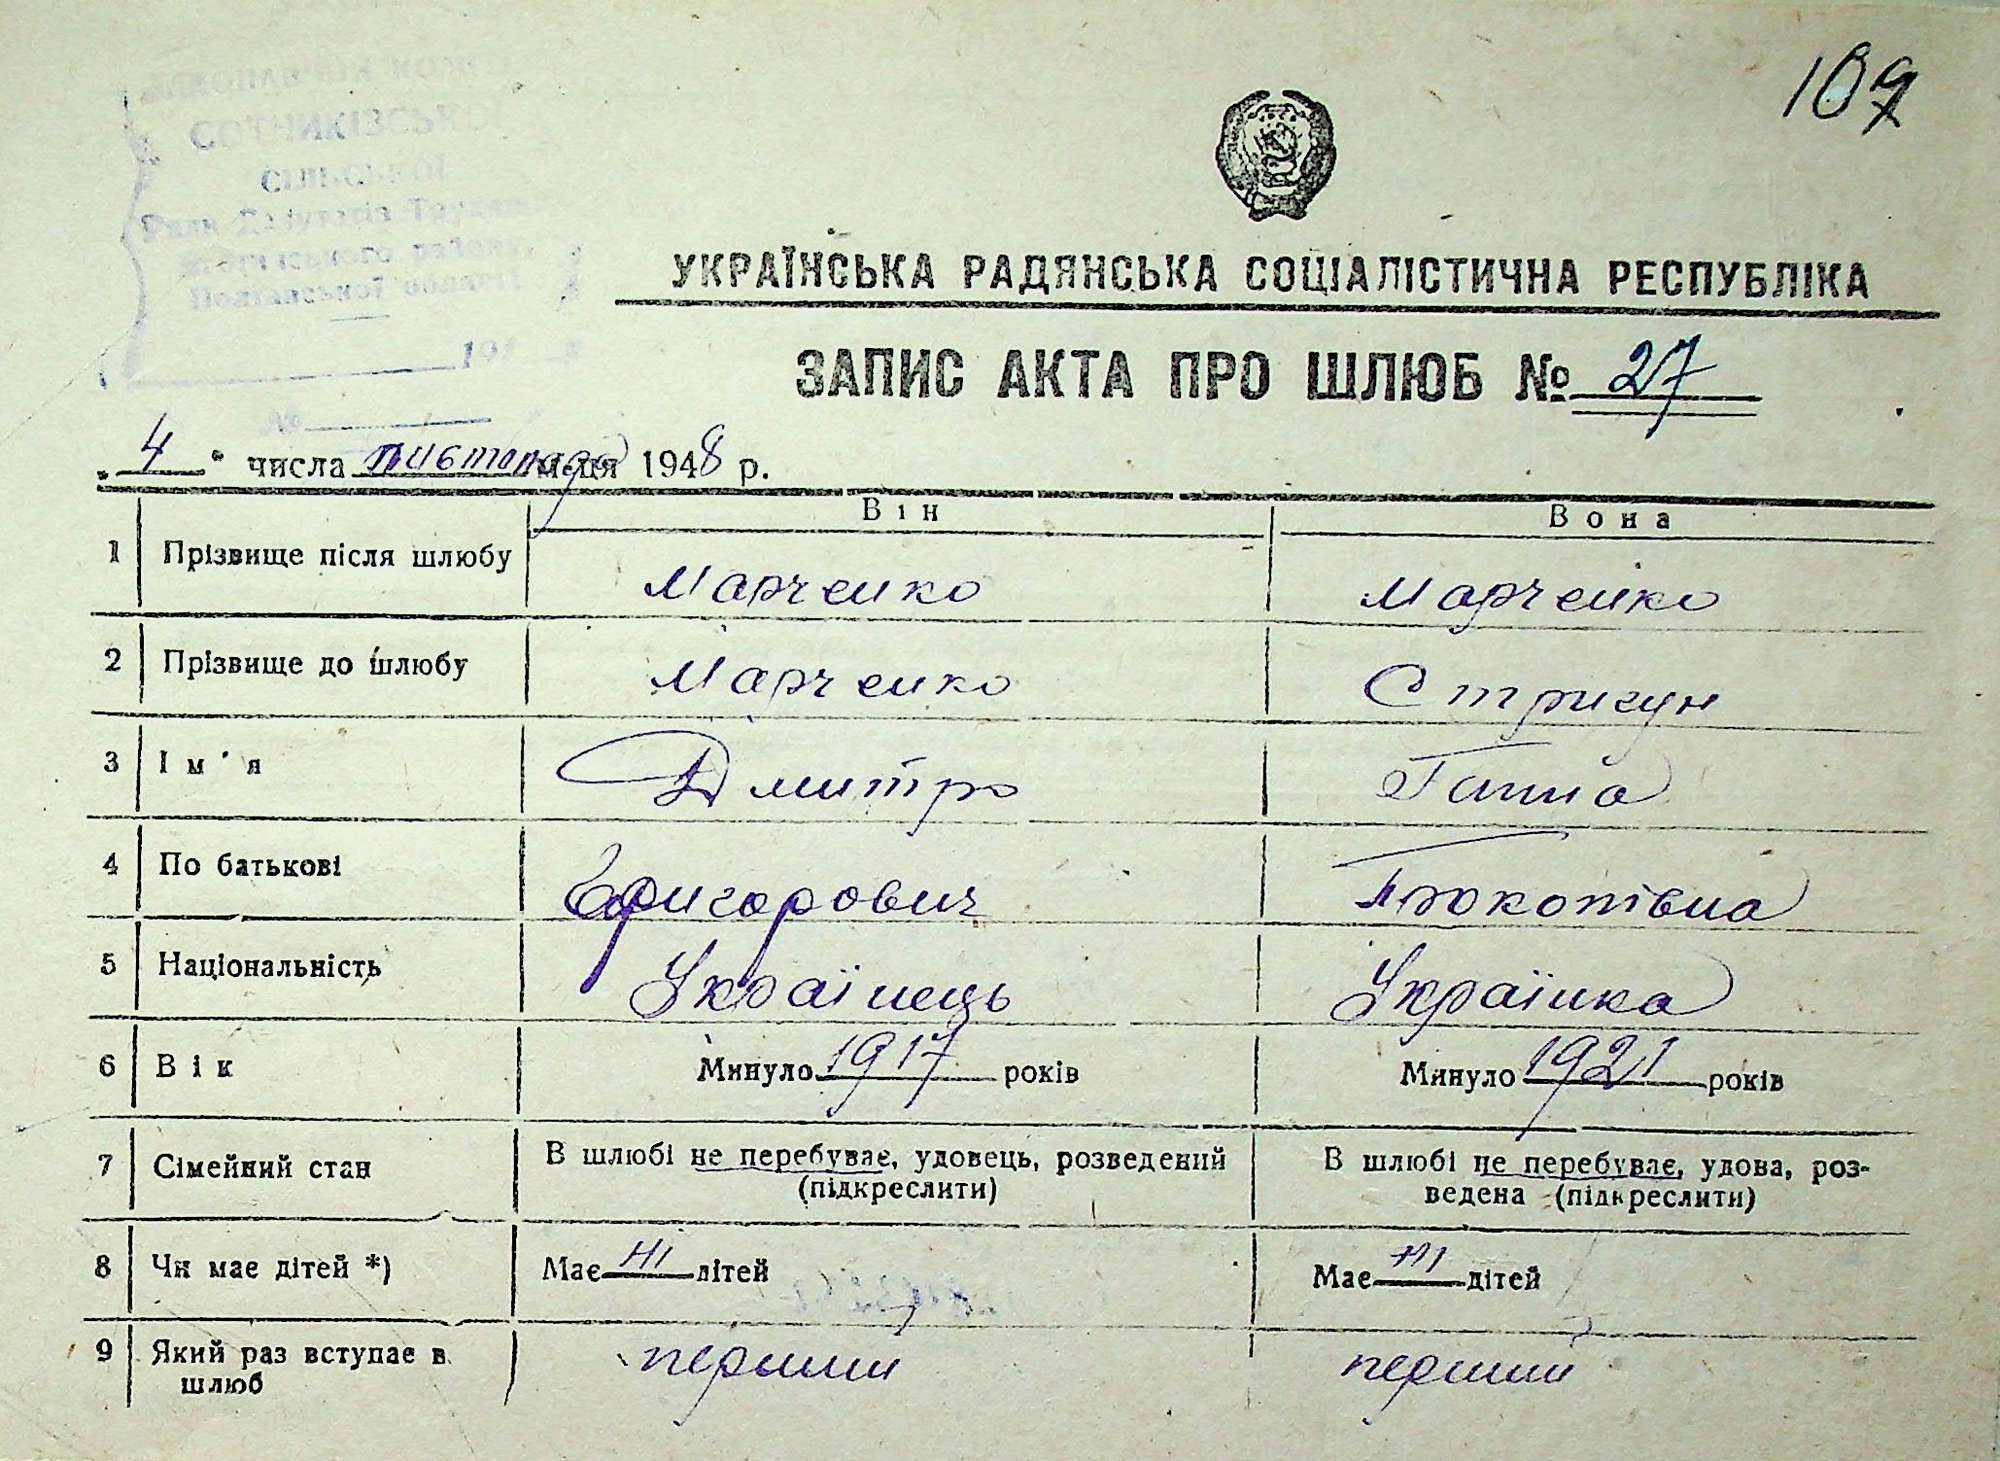 109
СОТНИКІВСЬКОЇ
СІЛЬСЬКОЇ
Ради Депутатів Трудящ
району,
Полтавської області
№
УКРАЇНСЬКА РАДЯНСЬКА СОЦІАЛІСТИЧНА РЕСПУБЛІКА
ЗАПИС АКТА ПРО ШЛЮБ № 27
„4" числа листопада м-ця 1948 р.
Він Вона
1 Прізвище після шлюбу Марченко Марченко
2 Прізвище до шлюбу Марченко Стригун
3 Ім'я Дмитро Ганна
4 По батькові Григорович Прокопівна
5 Національність Українець Українка
6 Вік Минуло 1917 років Минуло 1921 років
7 Сімейний стан В шлюбі не перебуває, удовець, розведений В шлюбі не перебуває, удова, роз-
(підкреслити) ведена (підкреслити)
8 Чи має дітей *) Має ні дітей Має ні дітей
9 Який раз вступає в перший перший
шлюб